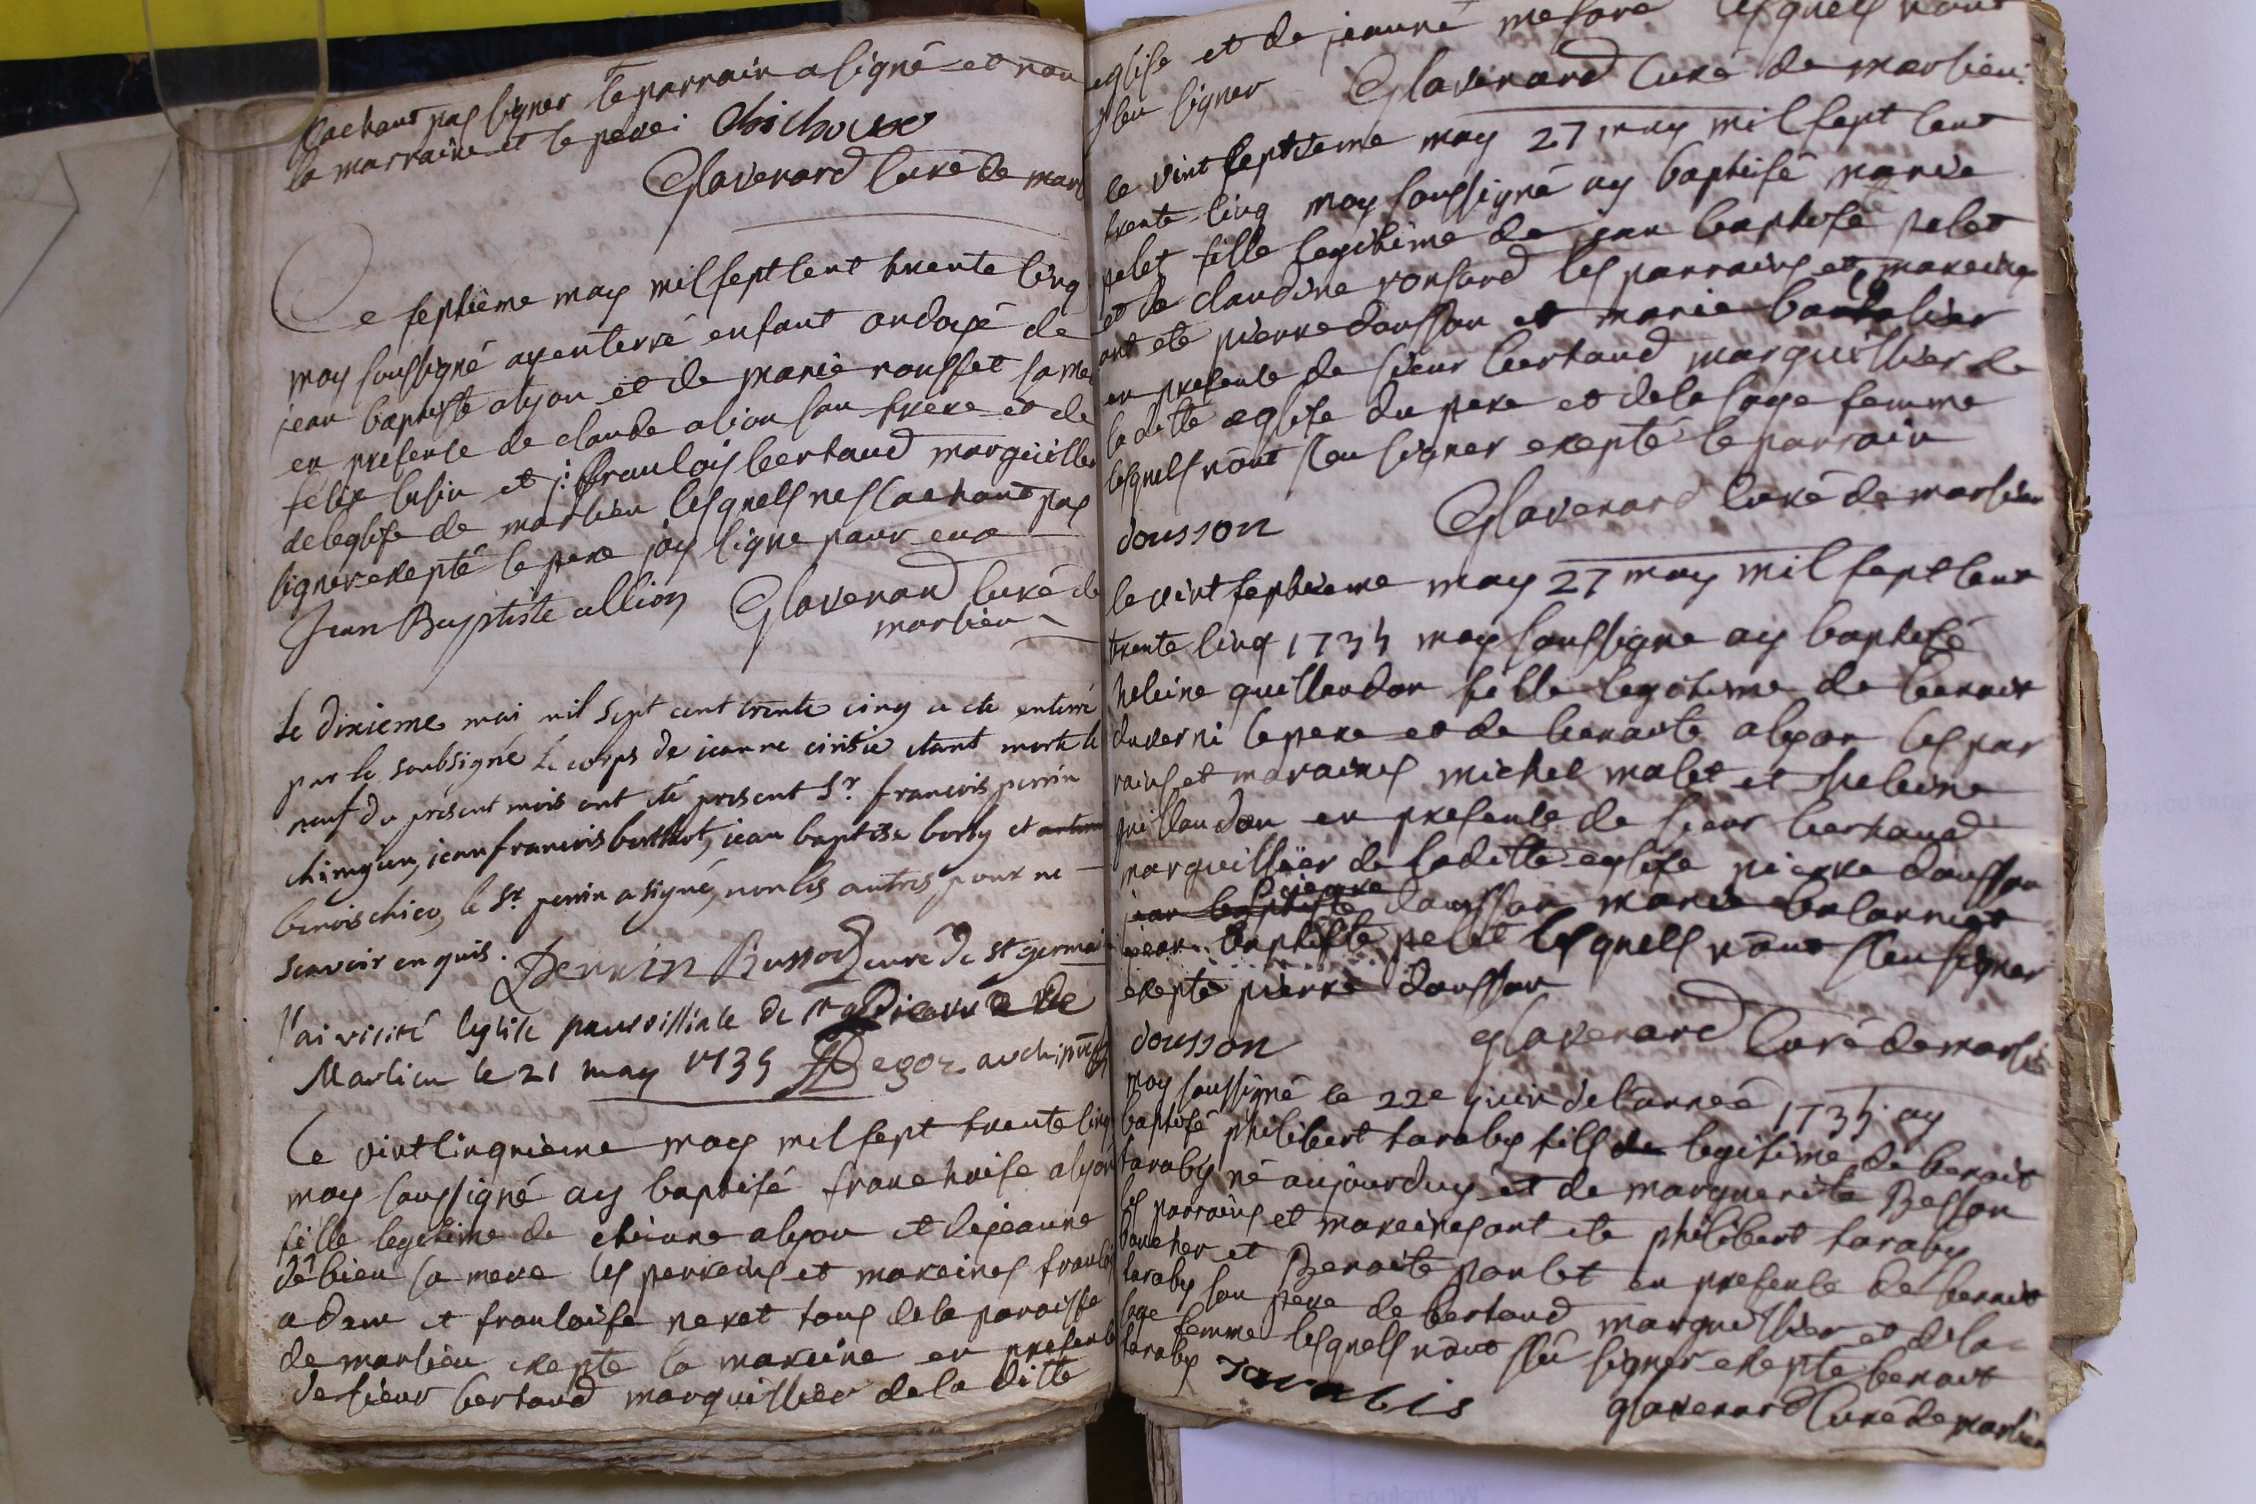 sachant pas signer le parrain a signé et non
la marraine et le pere
Glavenard curé de marl
Ce septieme may mil sept cent trente cinq
moy soussigné ay enterré enfant ondoyé de
jean baptiste alyon et de marie rousset sa me
en presence de claude alion son frere et de
felix cusin et françois bertaud marguillier
de leglise de marlieu lesquels ne scachant pas
signer exepté le pere jay signe pour eux
Jean Baptiste allion Glavenard curé de
marlieu
le dixieme mai mil sept cent trente cinq a été enterré
par le soubsigné le corps de jeanne étant morte le
neuf du présent mois ont été present Sr. francois perrin
chirugien, jean francois berthet, jean baptiste borly et antoine
benoischico, le Sr. perrin a signé, non les autres pour ne
scavoir enquis. Perrin Bussod curé de st germain
J'ai visité leglise parroissiale de st pierre de
Marlieu le 21 may 1735 Degoz archipretre
Ce vint cinquieme may mil sept trente cinq
moy soussigné ay baptisé franchoise alyon
fille legitime de etienne alyon et de jeanne
debieu sa mere les perreins et mareines francois
adam et francoise neret tous de la paroisse
de marlieu exepte la mareine en presence
de sieur bertaud marguillier de la ditte
eglise et de jeanne mesore lesquels nont
sceu signer Glavenard curé de marlieu
le vint septieme may 27 may mil sept cent
trente cinq moy soussigné ay baptisé marie
pelet fille legitime de jean baptise pelet
et de claudine ronsard les parrains et mareines
ont ete pierre dousson et marie
en presence de sieur bertaud marguillier de
laditte eglise du pere et de la sage femme
lesquels nont sceu signer exepté le parrain
dousson Glavenard curé de marlieu
le vint septieme may 27 may mil sept cent
trente cinq 1735 moy soussigne ay baptisé
heleine guillaudon fille legitime de benoit
duverni le pere et de benoite alyon les par
rains et maraines michel malet et heleine
guillaudon en presence de sieur bertaud
marguillier de laditte eglise pierre dousson
jean baptiste pierre dousson marie
jean baptiste pelet lesquels nont sceu signer
exepte pierre dousson
dousson glavenard curé de marlieu
moy soussigné le 22e juin de lannee 1735 ay
baptisé philibert taraby fils de legitime de benoit
taraby né aujourduy et de marguerite Besson
les parrains et mareines ont ete philibert taraby
boucher et Benoite poulet en presence de benoit
taraby son pere de bertaud marguillier et de la
sage femme lesquels nont sceu signer exepte benoit
taraby Tarabis glavenard curé de marlieu